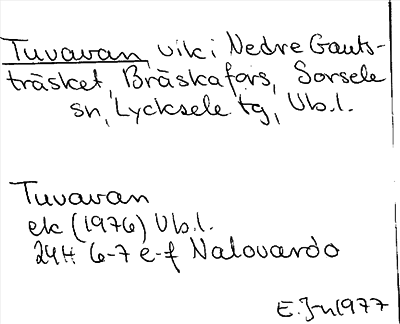 Tuvavan vik i Nedre Gauts-
träsket, Bräskafors, Sorsele
sn, Lycksele tg, Vb.l.
Tuvavan
ek (1976) Vb.l.
24H 6-7 e-f Nalovardo
E.Jn 1977